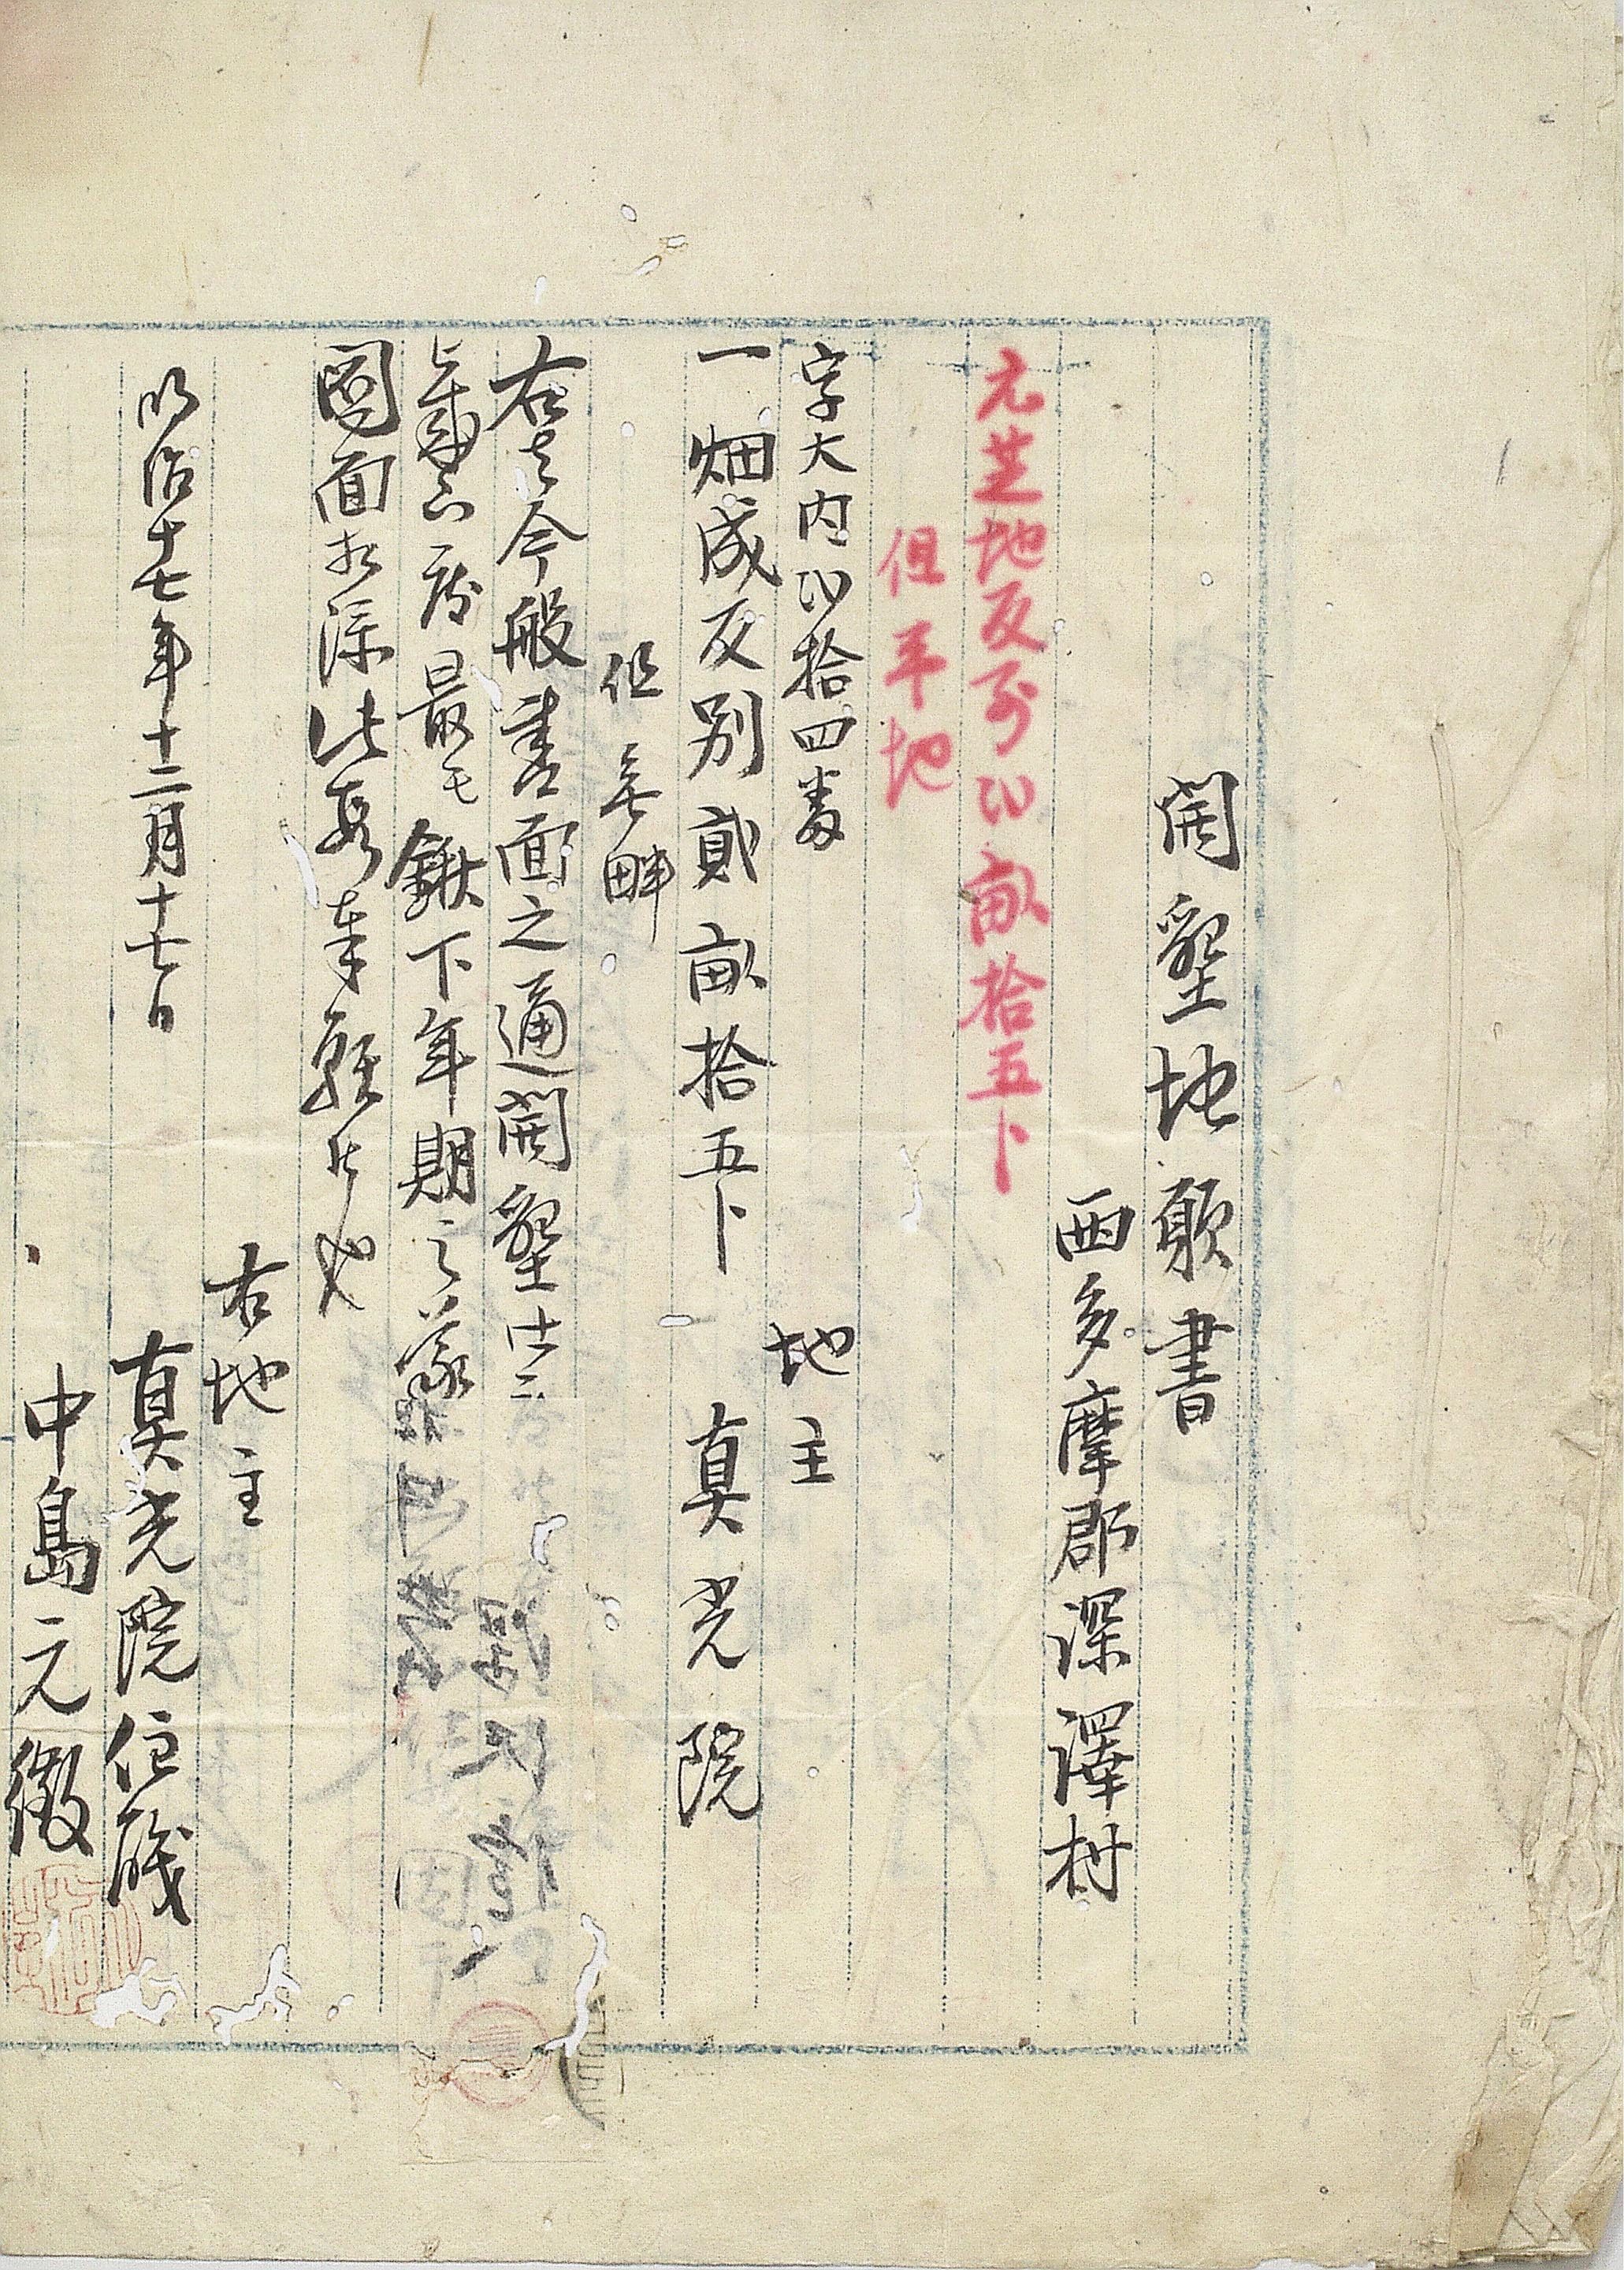 開墾地願書
西多摩郡深澤村
元芝地反別貳畝拾五卜
但平地
字大内貳拾四番
地主
一畑成反別貳畝拾五卜 真光院
但無畔
右者今般書面之通開墾仕
最モ鍬下年期之義
図面相添此段奉願候也
右地主
明治十七年十二月十七日 真光院住職
中島元徴